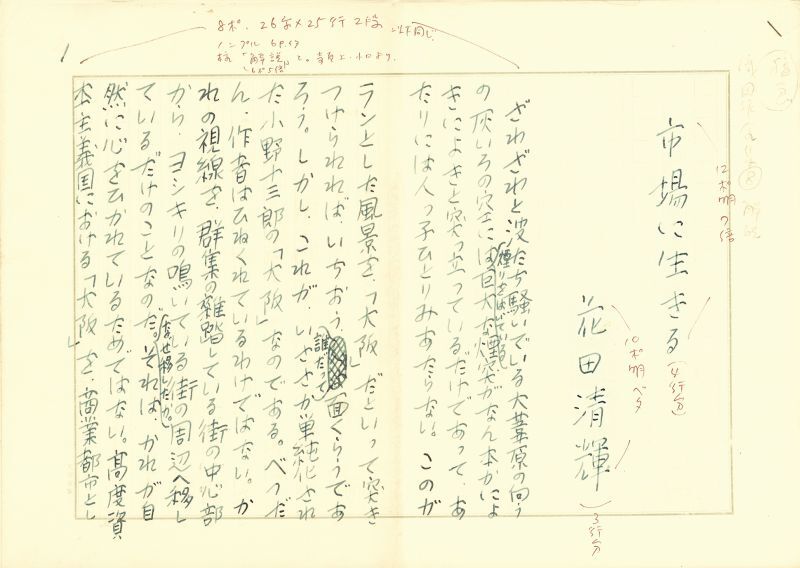 8ポ、26字×25行 2段 以下同じ
ノンブル
市場に生きる
(4行分)
12ポ明 7倍
花田清輝
10ポ明 ベタ
3行分
ざわざわと波だち騒いでいる大葦原の向う
の灰いろの空には、煙りをはいている巨大な煙突がなん本かによ
きによきと突っ立っているだけであって、あ
たりには人っ子ひとりみあたらない。このガ
ランとした風景を、「大阪」だといって突き
つけられれば、いちおう、誰だって面くらうであ
ろう。しかし、これが、いささか単純化され
た小野十三郎の「大阪」なのである。べつだ
ん、作者はひねくれているわけではない。か
れの視線を、群集の雑踏している街の中心部
から、ヨシキリの鳴いている街の周辺へ移し
ているだけのことなのだ。それは、かれが自
然に心をひかれているためではない。高度資
本主義国における「大阪」を、商業都市とし